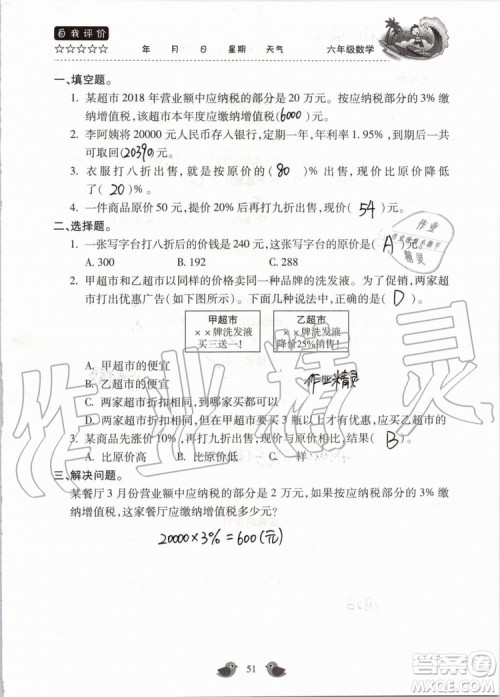 自我评价
☆☆☆☆☆ 年 月 日 星期 天气 六年级数学
一、填空题。
1. 某超市 2018 年营业额中应纳税的部分是 20 万元。按应纳税部分的 3% 缴
纳增值税,该超市本年度应缴纳增值税(6000)元。
2. 李阿姨将 20000 元人民币存入银行,定期一年,年利率 1.95%,到期一共
取回(20390)元。
3. 衣服打八折出售,就是按原价的(80)%出售,现价比原价降低
了(20)%。
4. 一件商品原价 50 元,提价 20%后,再打九折出售,现价(54)元。
二、选择题。
1. 一张写字台打八折后的价钱是 240 元,这张写字台的原价是(A)元。
A. 300 B. 192 C. 288
2. 甲超市和乙超市以同样的价格卖同一种品牌的洗发液。为了促销,两家超
市打出优惠广告(如下图):下面说法正确的是(D)。
甲超市
××牌洗发液
买三送一!
乙超市
××牌洗发液
降价25%销售!
A. 甲超市的便宜
B. 乙超市的便宜
C. 两家超市折扣相同,到哪家买都可以
D. 两家超市折扣相同,但在甲超市要买 3 瓶以上才有优惠,应买乙超市的
3. 某商品先涨价 10%,再打九折出售,现价与原价相比,结果(B)。
A. 比原价高 B. 比原价低 C. 一样
三、解决问题。
某餐厅 3 月份营业额中应纳税的部分是 2 万元,如果按应纳税部分的 3% 缴
纳增值税,这家餐厅应缴纳增值税多少元?
20000×3%=600(元)
51
作业精灵
作业精灵
作业
精灵
答案圈
MXQE.COM